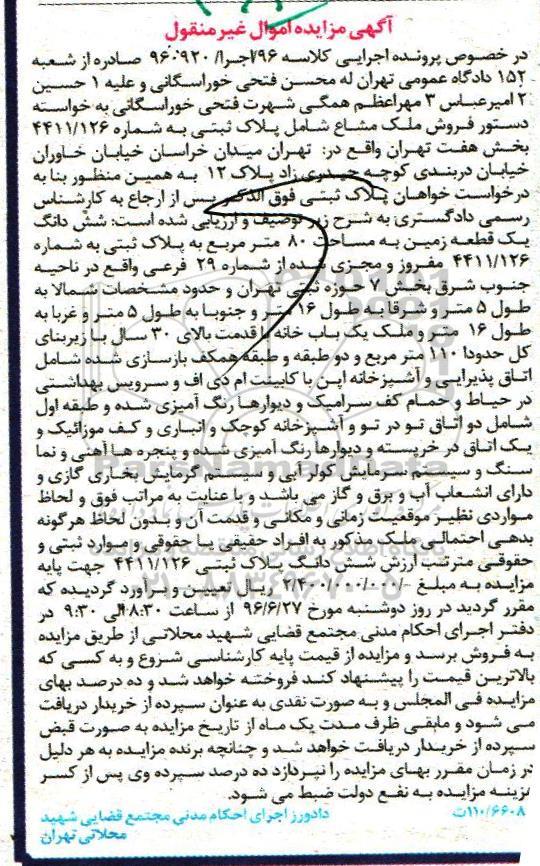 آگهی مزایده اموال غیر منقول
در خصوص پرونده اجرایی کلاسه ۹۶/اجرا/۹۶۰۹۲۰ صادره از شعبه
۱۵۲ دادگاه عمومی تهران له محسن فتحی خوراسگانی و علیه ۱ حسین
۲ امیرعباس ۳ مهراعظم همگی شهرت فتحی خوراسگانی به خواسته
دستور فروش ملک مشاع شامل پلاک ثبتی به شماره ۴۴۱۱/۱۲۶
بخش هفت تهران واقع در: تهران میدان خراسان خیابان خاوران
خیابان دربندی کوچه حیدری زاد پلاک ۱۲ به همین منظور بنا به
درخواست خواهان پلاک ثبتی فوق الذکر پس از ارجاع به کارشناس
رسمی دادگستری به شرح زیر توصیف و ارزیابی شده است: شش دانگ
یک قطعه زمین به مساحت ۸۰ متر مربع به پلاک ثبتی به شماره
۴۴۱۱/۱۲۶ مفروز و مجزی شده از شماره ۲۹ فرعی واقع در ناحیه
جنوب شرق بخش ۷ حوزه ثبتی تهران و حدود مشخصات شمالا به
طول ۵ متر و شرقا به طول ۱۶ متر و جنوبا به طول ۵ متر و غربا به
طول ۱۶ متر و ملک یک باب خانه با قدمت بالای ۳۰ سال با زیربنای
کل حدودا ۱۱۰ متر مربع و دو طبقه و طبقه همکف بازسازی شده شامل
اتاق پذیرایی و آشپزخانه اپن با کابینت ام دی اف و سرویس بهداشتی
در حیاط و حمام کف سرامیک و دیوارها رنگ آمیزی شده و طبقه اول
شامل دو اتاق تو در تو و آشپزخانه کوچک و انباری و کف موزائیک و
یک اتاق در خرپسته و دیوارها رنگ آمیزی شده و پنجره ها آهنی و نما
سنگ و سیستم سرمایش کولر آبی و سیستم گرمایش بخاری گازی و
دارای انشعاب آب و برق و گاز می باشد و با عنایت به مراتب فوق و لحاظ
مواردی نظیر موقعیت زمانی و مکانی و قدمت آن و بدون لحاظ هرگونه
بدهی احتمالی ملک مذکور به افراد حقیقی یا حقوقی و موارد ثبتی و
حقوقی مترتب ارزش شش دانگ پلاک ثبتی ۴۴۱۱/۱۲۶ جهت پایه
مزایده به مبلغ ۴/۴۰۰/۰۰۰/۰۰۰/- ریال تعیین و برآورد گردیده که
مقرر گردید در روز دوشنبه مورخ ۹۶/۶/۲۷ از ساعت ۸:۳۰ الی ۹:۳۰ در
دفتر اجرای احکام مدنی مجتمع قضایی شهید محلاتی از طریق مزایده
به فروش برسد و مزایده از قیمت پایه کارشناسی شروع و به کسی که
بالاترین قیمت را پیشنهاد کند فروخته خواهد شد و ده درصد بهای
مزایده فی المجلس و به صورت نقدی به عنوان سپرده از خریدار دریافت
می شود و مابقی ظرف مدت یک ماه از تاریخ مزایده به صورت قبض
سپرده از خریدار دریافت خواهد شد و چنانچه برنده مزایده به هر دلیل
در زمان مقرر بهای مزایده را نپردازد ده درصد سپرده وی پس از کسر
هزینه مزایده به نفع دولت ضبط می شود.
۱۱۰/۶۶۰۸ت دادورز اجرای احکام مدنی مجتمع قضایی شهید
محلاتی تهران
ParsNamadData
۰۲۱-۸۸۳۴۹۶۷۰-۵